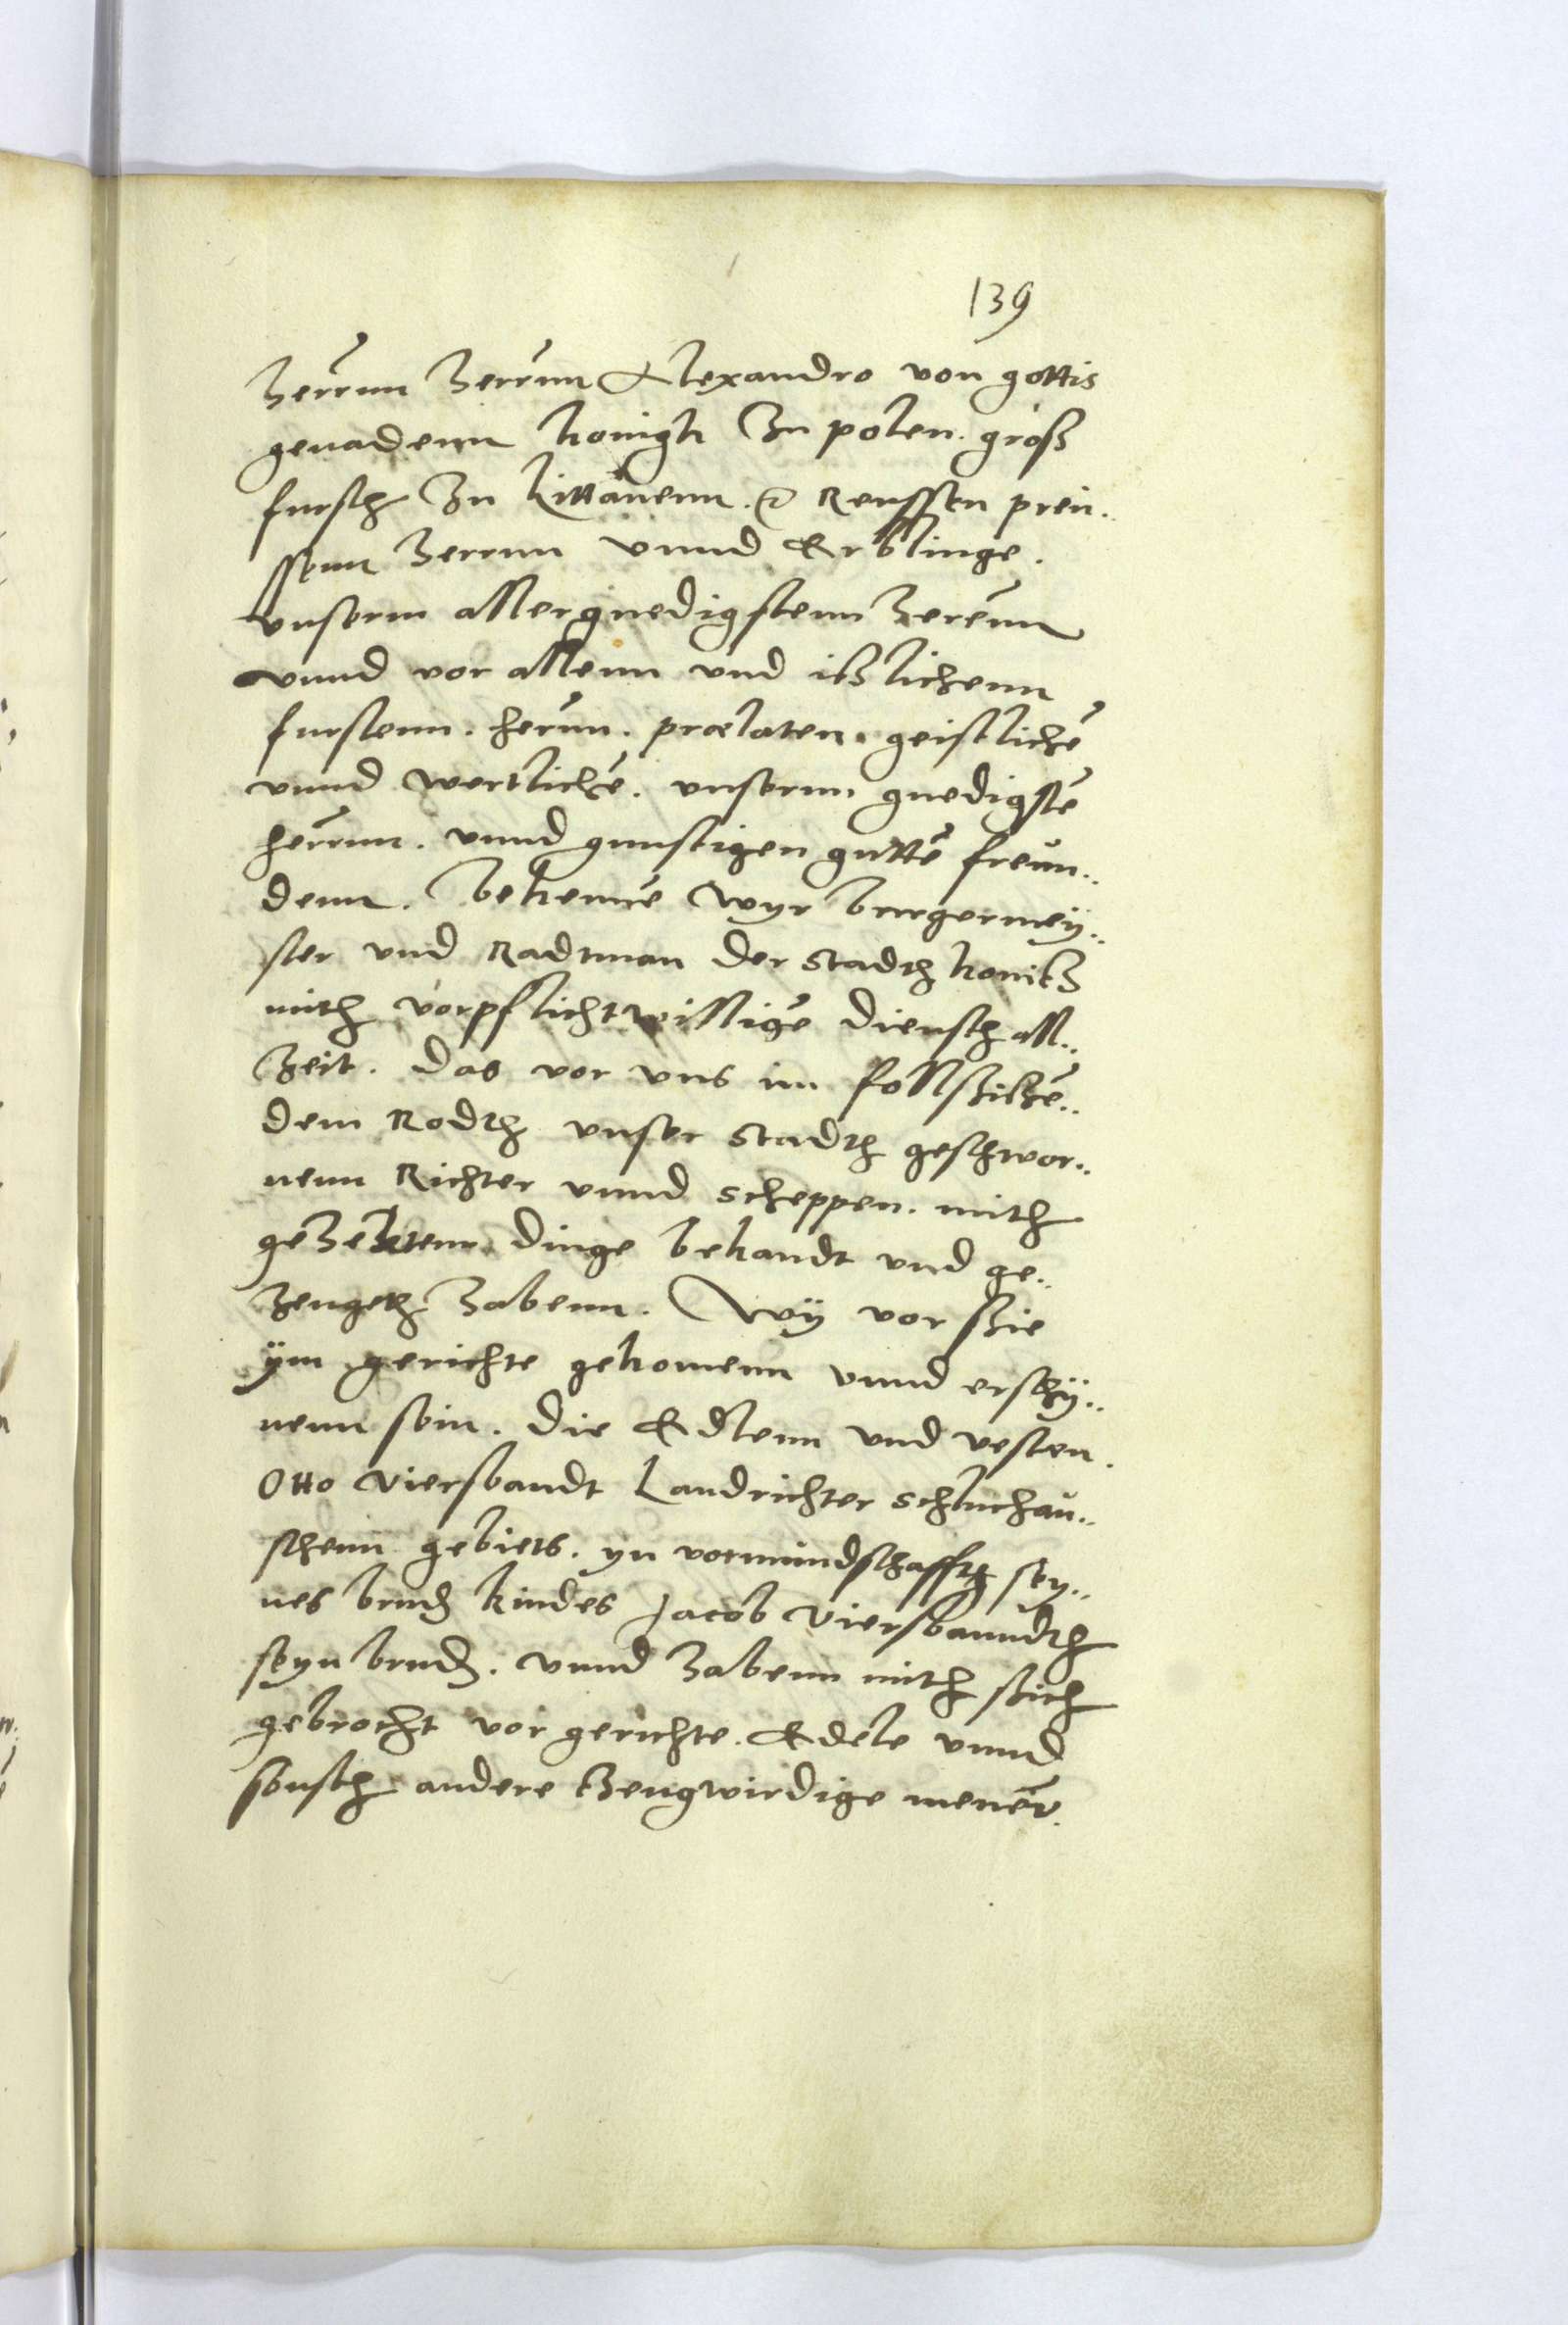 139
Herrnn Herrnn Alexandro von gottis
genadenn konigk Zu polen. groß
fursth Zu Littauenn. Reussen preu..
ssenn Herrnn vnnd Erblinge.
vnserm allergnedigstenn Herenn
vnnd vor allenn vnd itzlichenn
furstenn. herrnn. prælaten. geistlichē
vnnd wertlichē. vnsernn gnedigstē
herrnn. vnnd gunstigen guttē freun..
denn. bekennē wyr burgermey..
ster vnd Radtman der Stadth konitz
mith vorpflichtwilligē diensth all..
Zeit. das vor vns im follsitzē..
dem Rodth vnser Stadth geschwor..
nenn Richter vnnd scheppen. mith
geHektenn dinge bekandt vnd ge..
Zeugeth Habenn. Wÿ vor ssie
ÿm gerichte gekomenn vnnd erschÿ..
nenn sein. die Edlenn vnd vesten.
Otto Viersbandt Landrichter Schluchau..
schenn gebiets. yn vormundschaffth sey..
nes brud kindes Jacob Viersbanndth
seyn brud. vnnd Habenn mith sich
gebrocht vor gerichte. Edele vnnd
sonsth andere tzeugwirdige menēr.